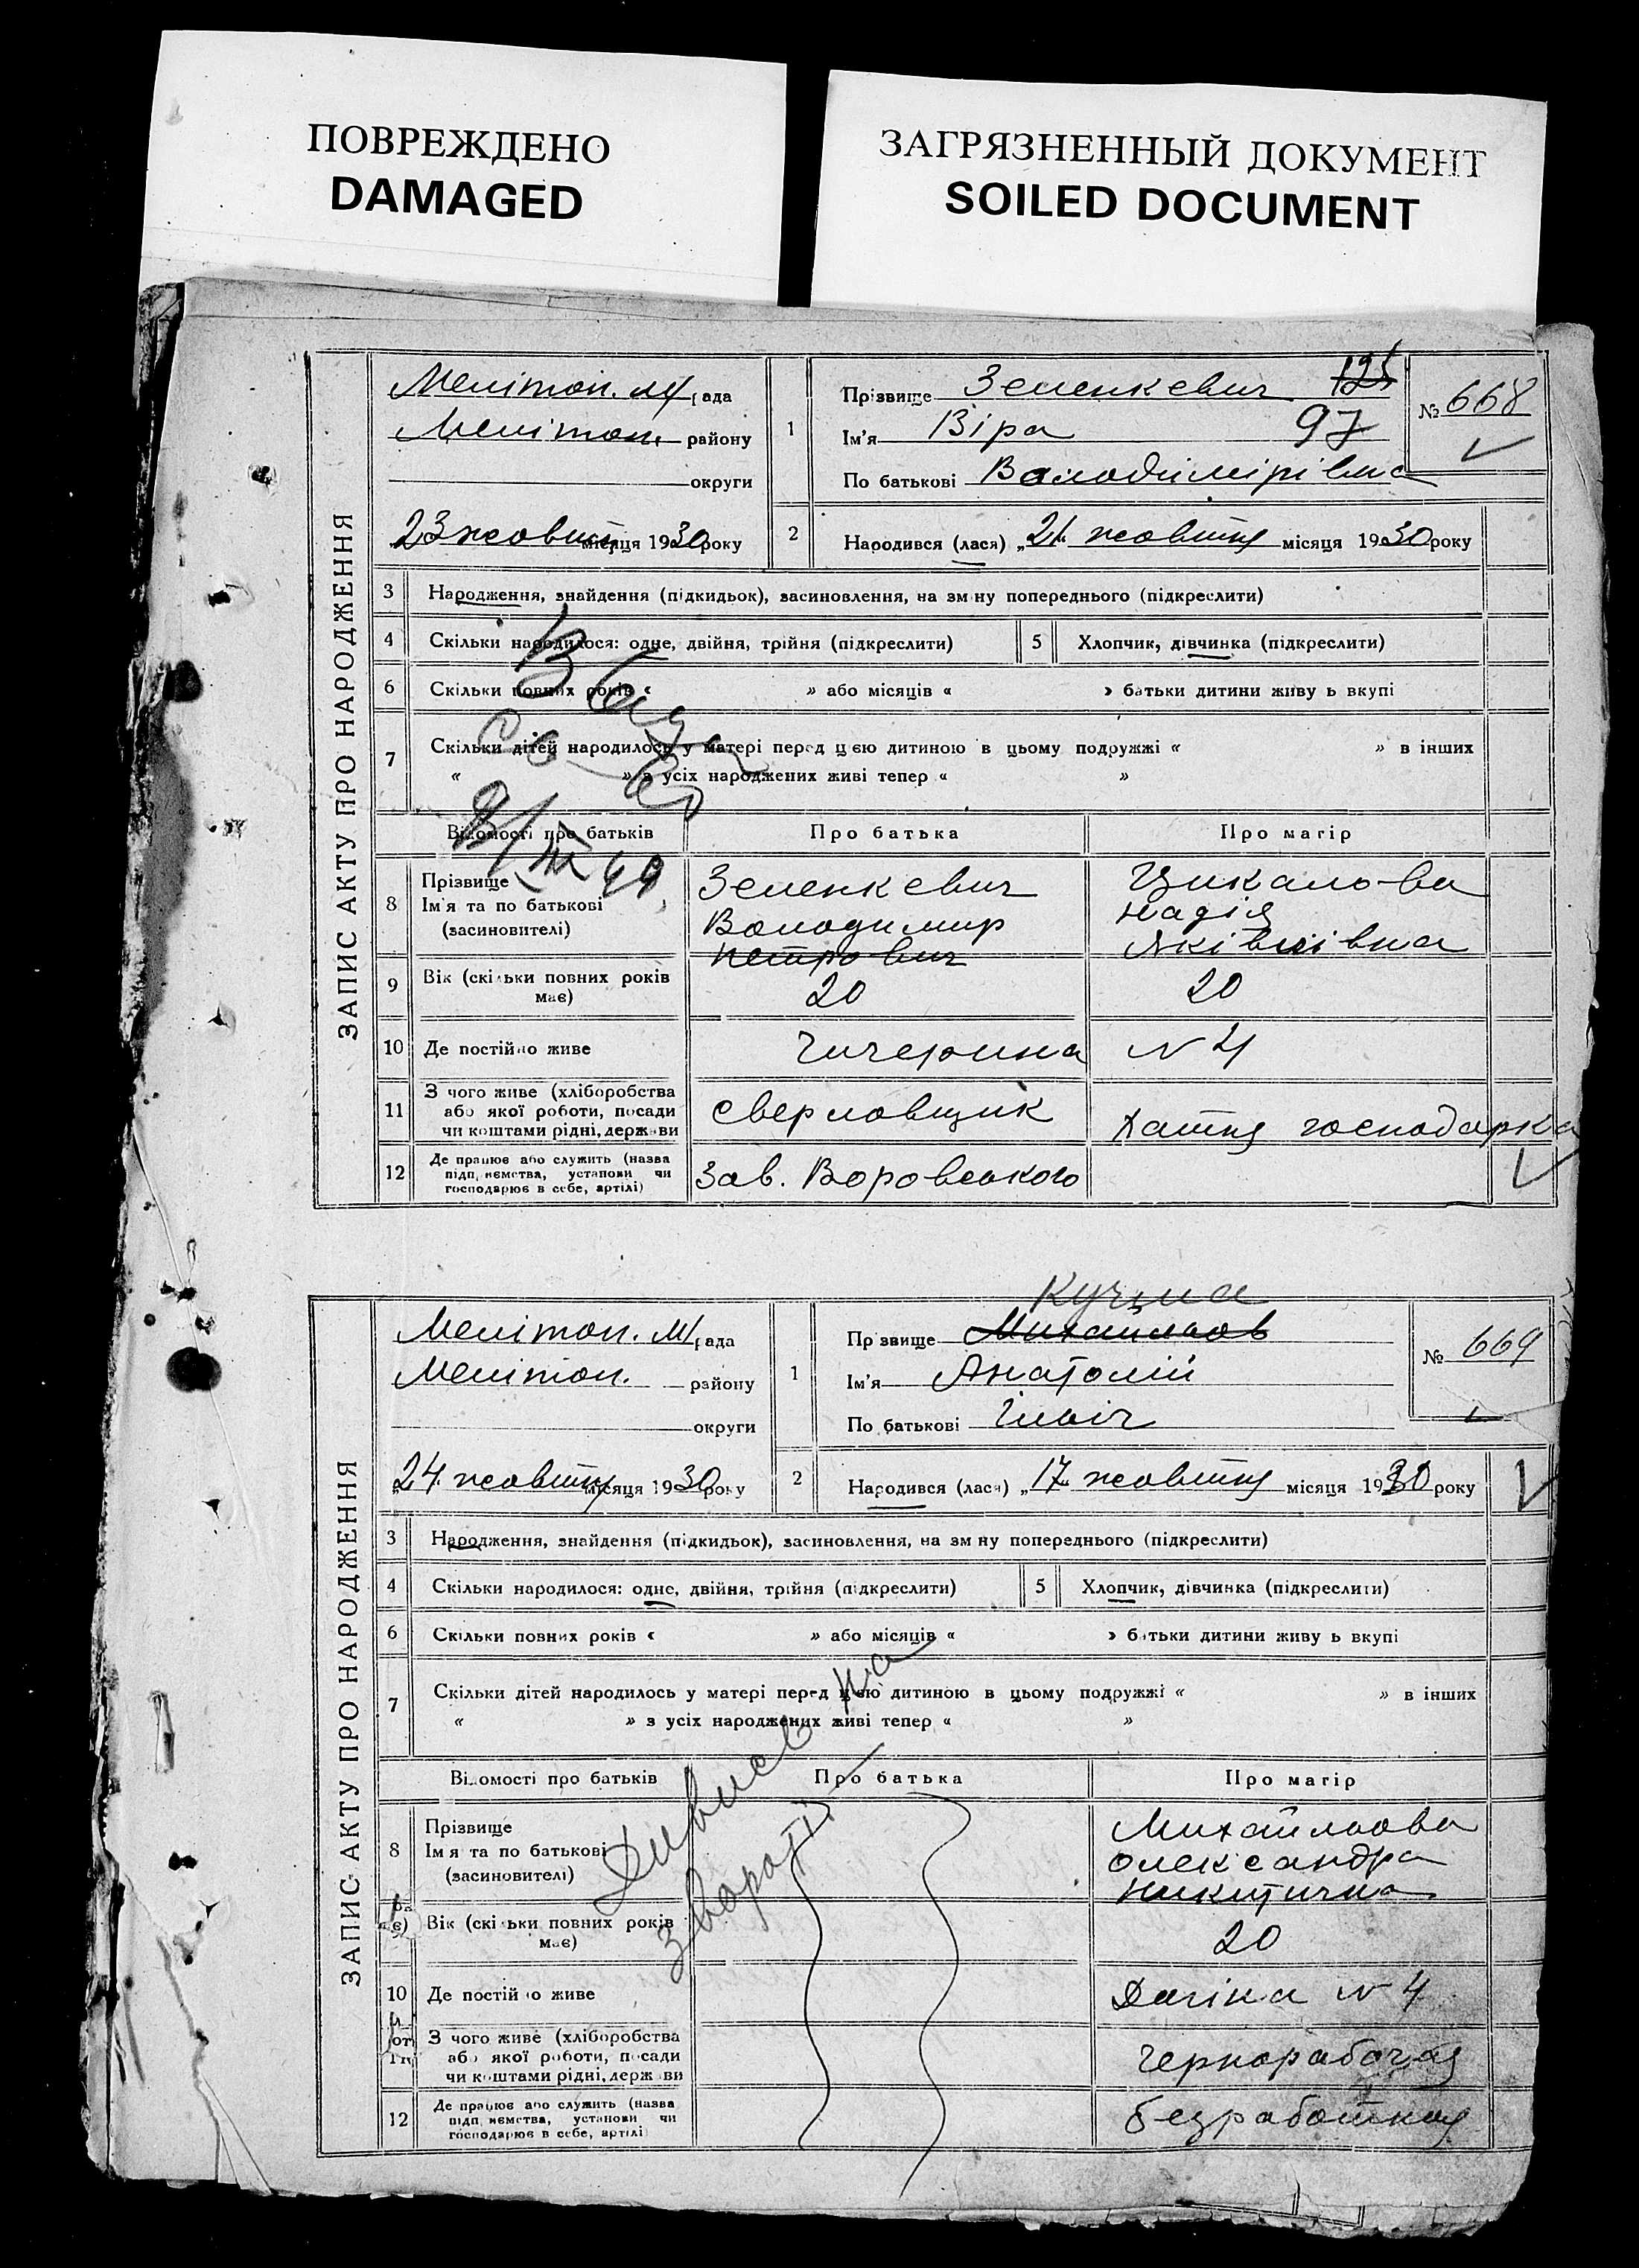 ПОВРЕЖДЕНО
DAMAGED
ЗАГРЯЗНЕННЫЙ ДОКУМЕНТ
SOILED DOCUMENT
ЗАПИС АКТУ ПРО НАРОДЖЕННЯ
Меліտոп. М/рада
Мелітоп. району
округи
23 жовтня місяця 1930 року
1
Прізвище Зеленкевич 125
Ім'я Віра 97
По батькові Володимірівна
№ 668
2
Народився (лася) „21 жовтня місяця 1930 року
3 Народження, знайдення (підкидьок), засиновлення, на зміну попереднього (підкреслити)
4 Скільки народилося: одне, двійня, трійня (підкреслити)
5 Хлопчик, дівчинка (підкреслити)
6 Скільки повних років « » або місяців « » батьки дитини живуть вкупі
7 Скільки дітей народилось у матері перед цією дитиною в цьому подружжі « » в інших
« » з усіх народжених живі тепер « »
Відомості про батьків
Про батька
Про матір
8 Прізвище
Ім'я та по батькові
(засиновителі)
Зеленкевич
Володимир
Петрович
Цикалова
Надія
Яківлівна
9 Вік (скільки повних років
має)
20
20
10 Де постійно живе
Чичерина
N 4
11 З чого живе (хліборобства
або якої роботи, посади
чи коштами рідні, держави
сверловщик
Хатня господарка
12 Де працює або служить (назва
підприємства, установи чи
господарює в себе, артілі)
Зав. Воровського
ЗАПИС АКТУ ПРО НАРОДЖЕННЯ
Мелітоп. М/рада
Мелітоп. району
округи
24 жовтня місяця 1930 року
1
Куцина
Прізвище Михайльов
Ім'я Анатолій
По батькові Ілліч
№ 669
2
Народився (лася) „17 жовтня місяця 1930 року
3 Народження, знайдення (підкидьок), засиновлення, на зміну попереднього (підкреслити)
4 Скільки народилося: одне, двійня, трійня (підкреслити)
5 Хлопчик, дівчинка (підкреслити)
6 Скільки повних років « » або місяців « » батьки дитини живуть вкупі
7 Скільки дітей народилось у матері перед цією дитиною в цьому подружжі « » в інших
« » з усіх народжених живі тепер « »
Дивись на
звороті
Відомості про батьків
Про батька
Про матір
8 Прізвище
Ім'я та по батькові
(засиновителі)
Михайльова
Олександра
Никитична
9 Вік (скільки повних років
має)
20
10 Де постійно живе
Даліна N 4
З чого живе (хліборобства
або якої роботи, посади
чи коштами рідні, держави
Чернорабочая
12 Де працює або служить (назва
підприємства, установи чи
господарює в себе, артілі)
безработная